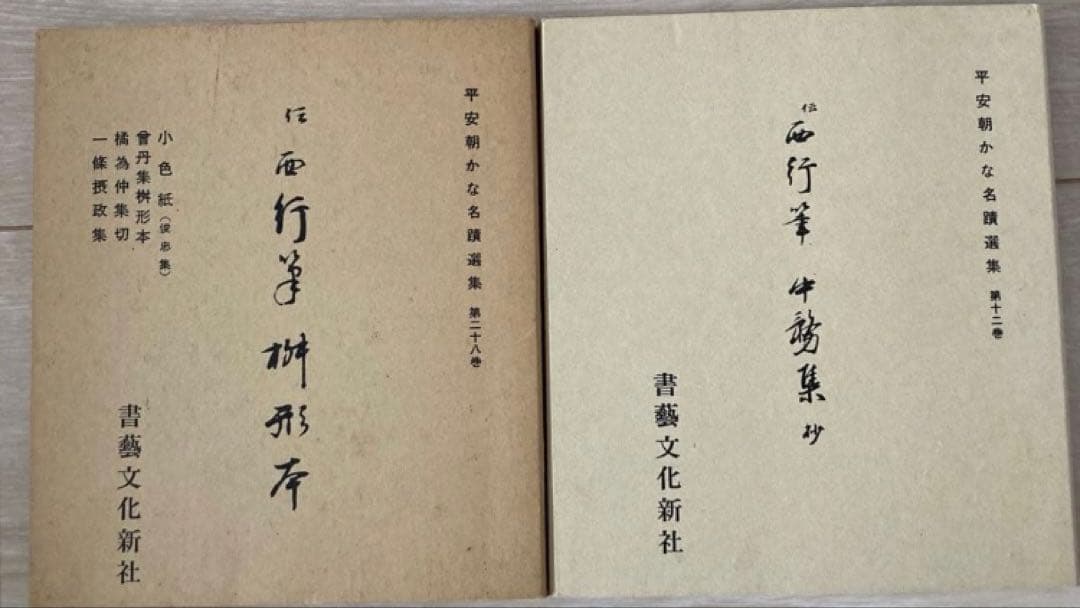 平安朝かな名蹟選集 第二十八巻
伝西行筆 桝形本
小色紙(俊忠集)
曾丹集桝形本
橘為仲集切
一條摂政集
書藝文化新社
平安朝かな名蹟選集 第十二巻
伝西行筆 中務集 抄
書藝文化新社